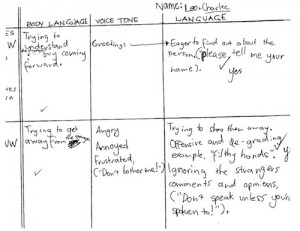 Name: Leo, Charlee
BODY LANGUAGE
VOICE TONE
LANGUAGE
ES
W
Trying to
understand
by coming
forward.
Greetings
Eager to find out about the
person (please tell me your
name).
yes
UW
Trying to get
away from
Angry
Annoyed
Frustrated,
("Don't bother me!")
Trying to shoo them away.
Offensive and de-grading
example, "filthy hands".
Ignoring the strangers
comments and opinions,
("Don't speak unless your
spoken to!").